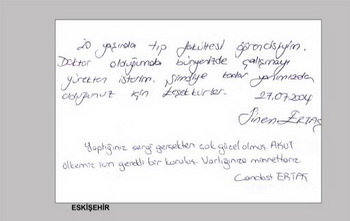 20 yaşında tıp fakültesi öğrencisiyim.
Doktor olduğumda bünyenizde çalışmayı
yürekten isterim. Şimdiye kadar yanımızda
olduğunuz için teşekkürler. 27.07.2004
Sinem ERTAŞ
Yaptığınız sergi gerçekten çok güzel olmuş. AKUT
ülkemiz için gerekli bir kuruluş. Varlığınıza minnettarız.
Candost ERTAŞ
ESKİŞEHİR